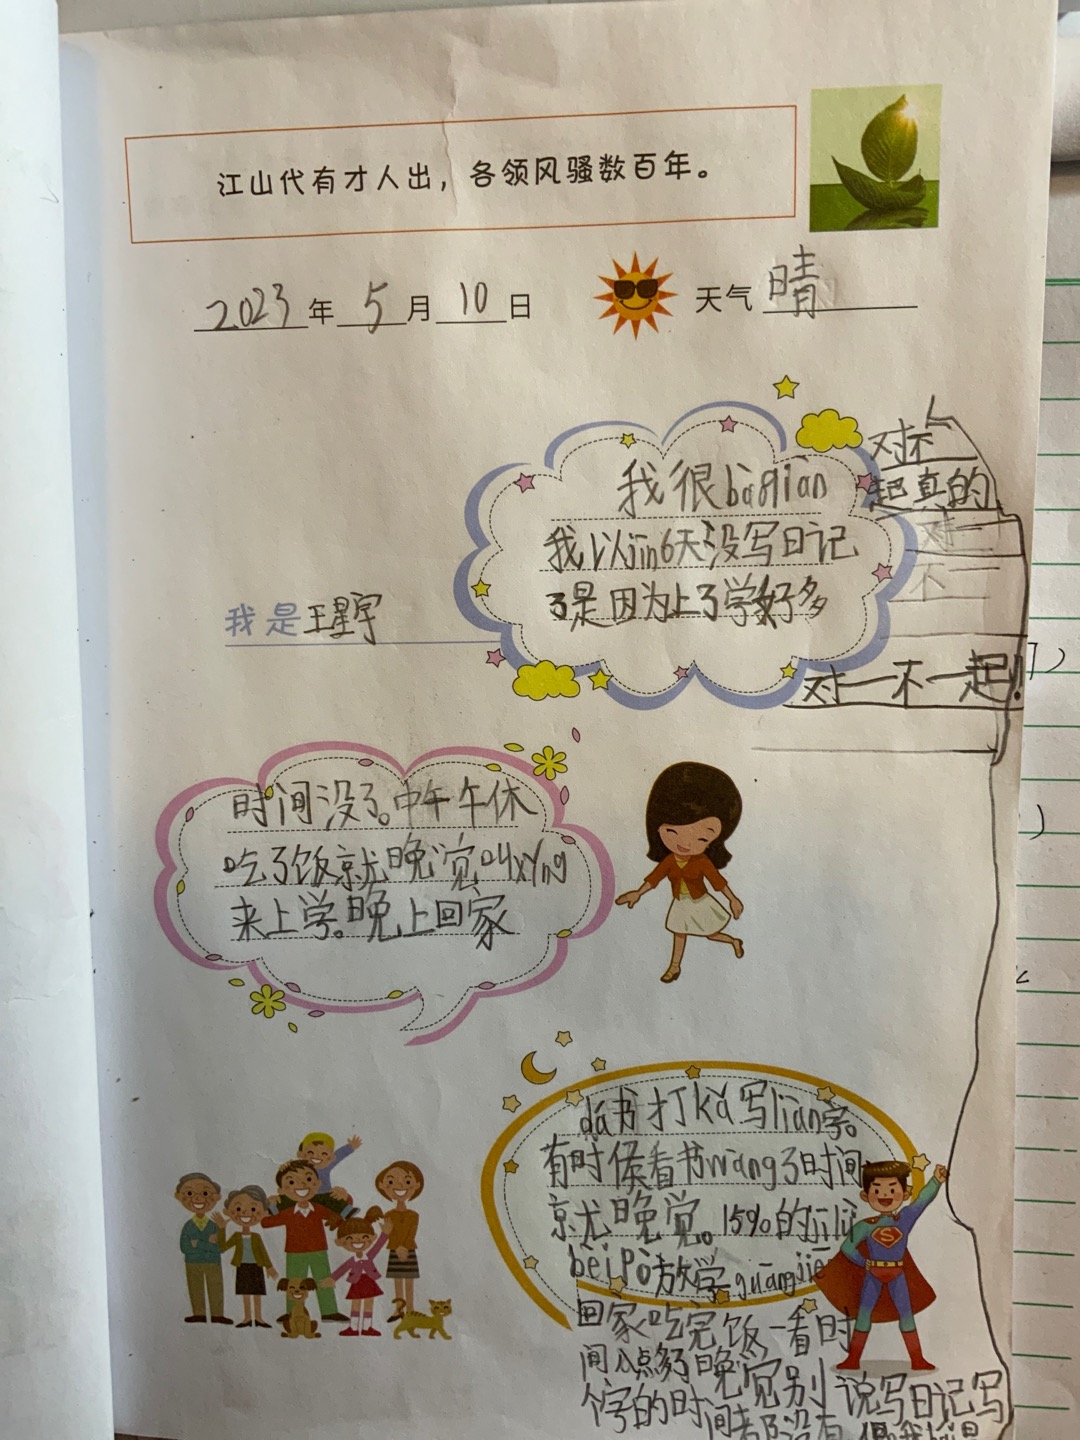 江山代有才人出，各领风骚数百年。
2023年5月10日
天气 晴
我很bàqiàn
我以jīn6天没写日记
了是因为上了学好多
对不
起真的
对一
不一
对一不一起!
我是王星宇
时间没了。中午午休
吃了饭就晚觉
来上学。晚上回家
dá书打kǎ写liàn字。
有时候看书wàng了时间
就晚觉。15%的jīlǜ
bèipò放学guàngjiē
回家吃完饭一看时
间八点多了晚觉别说写日记写
个字的时间都没有